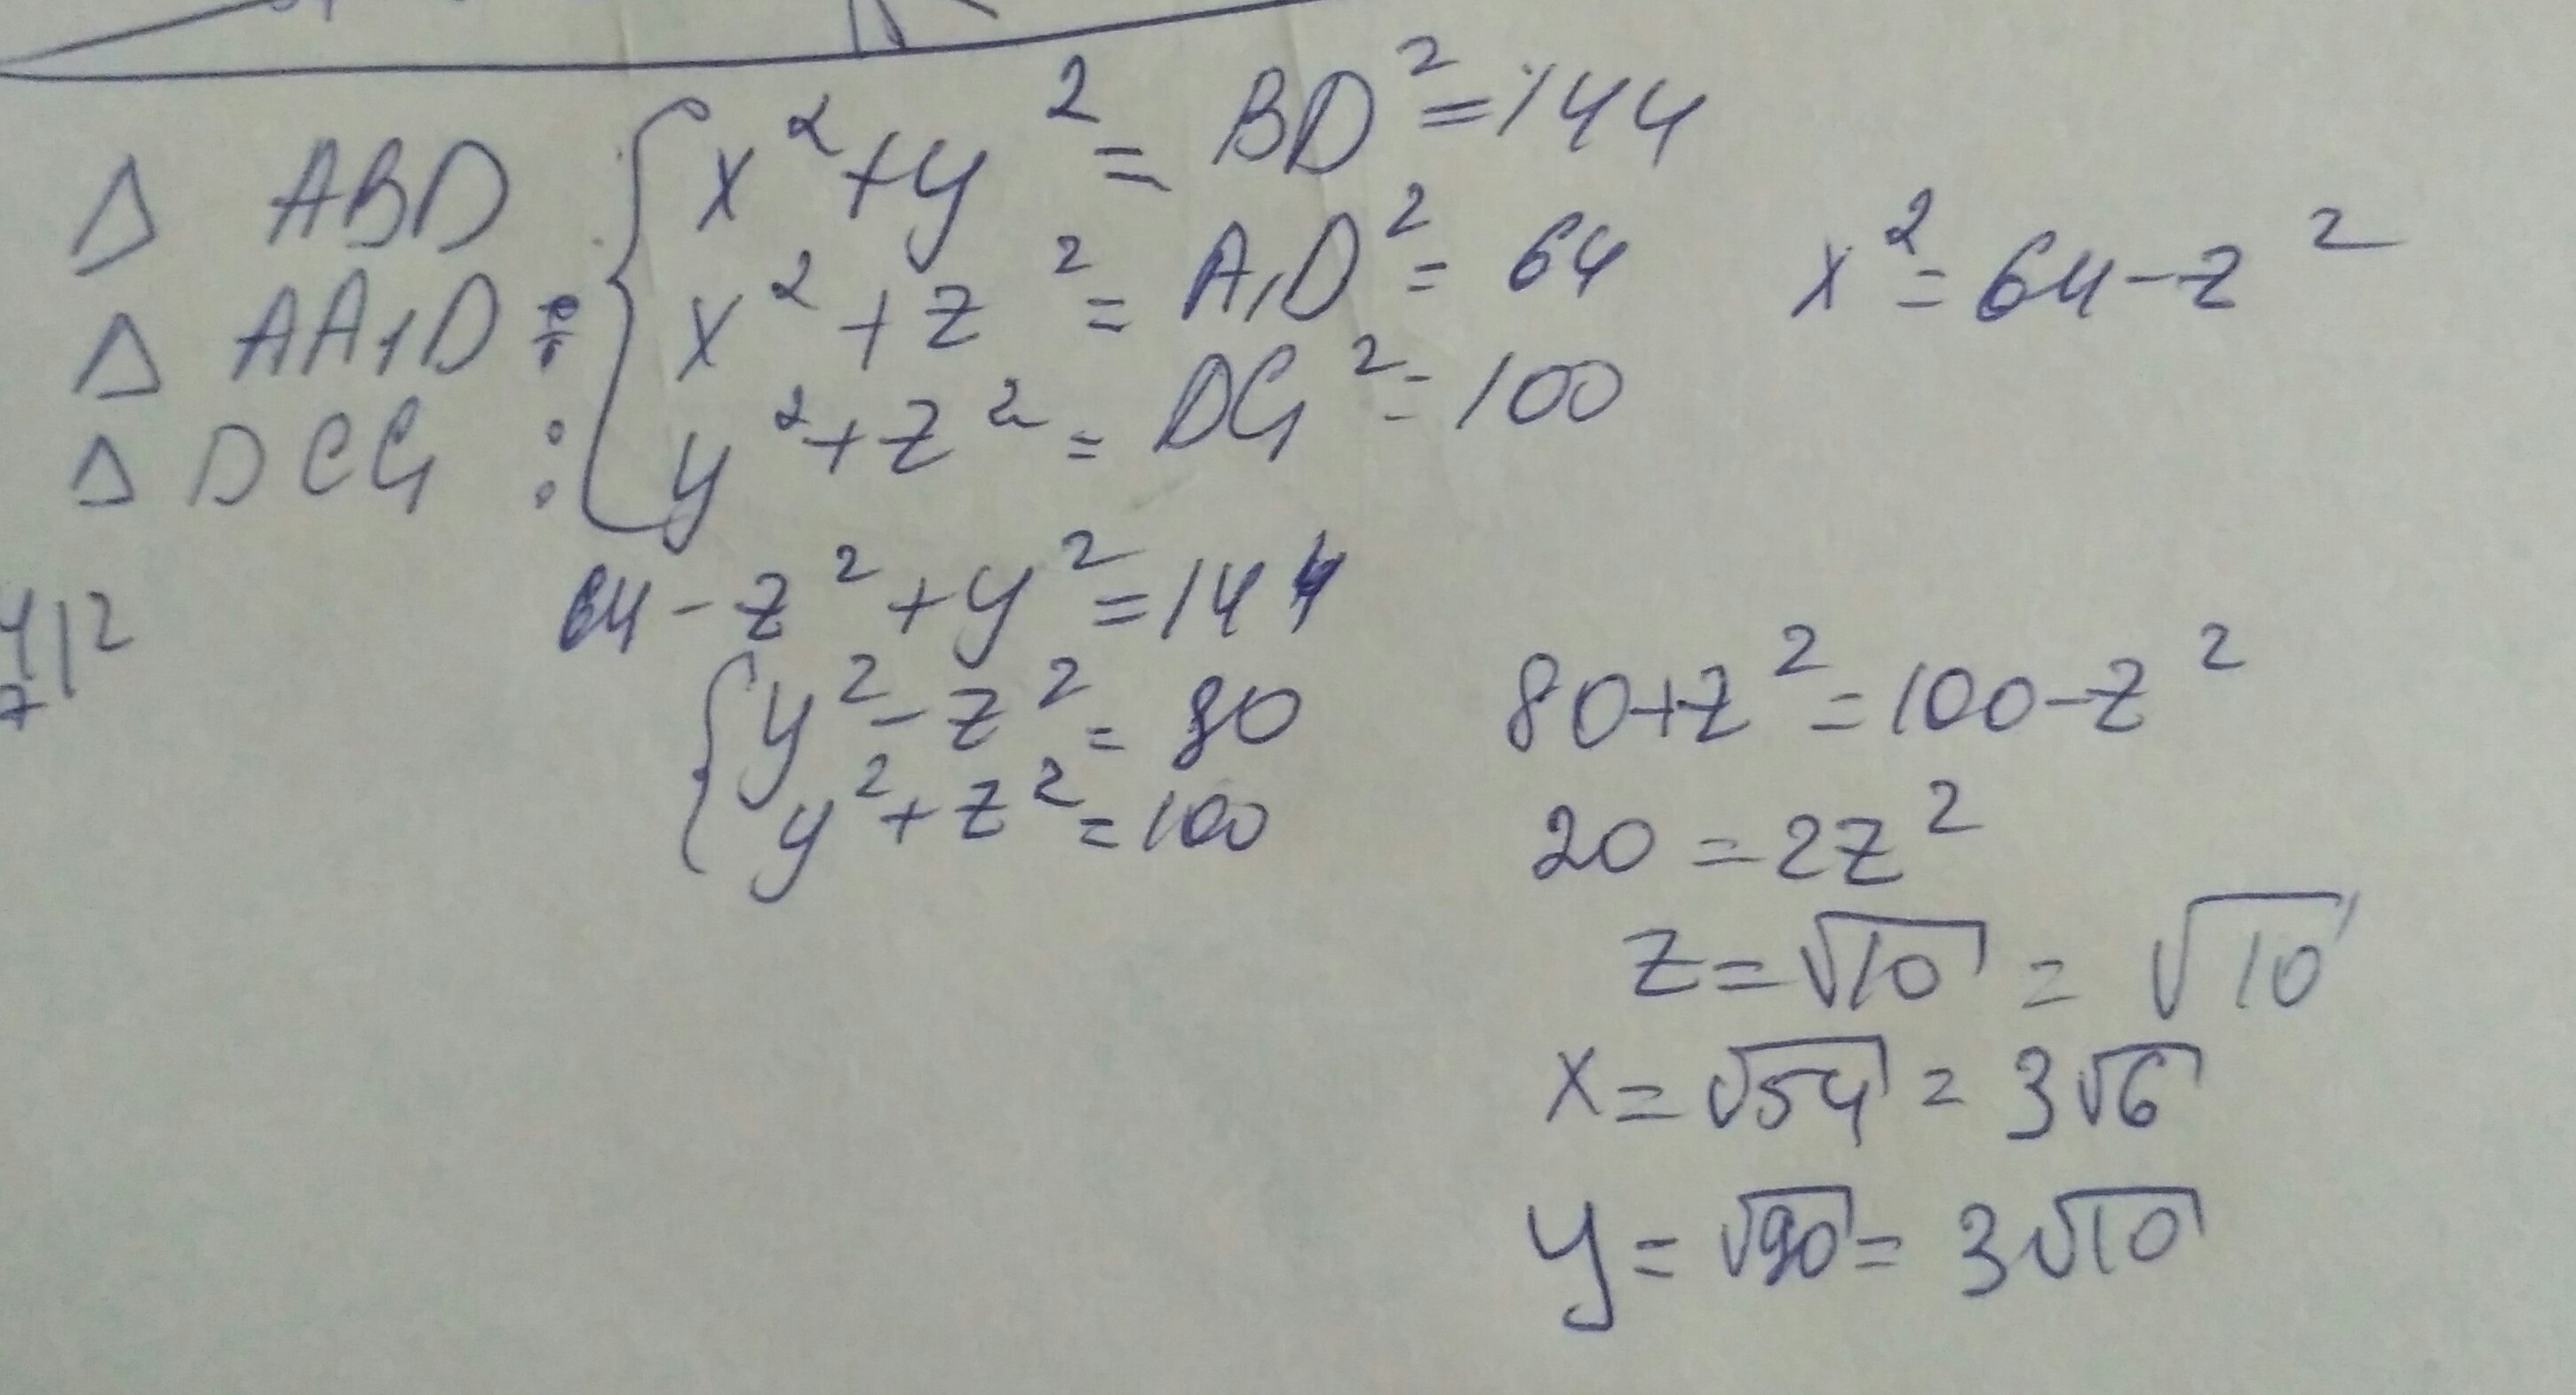 Δ ABD { x² + y² = BD² = 144
Δ AA₁D : x² + z² = A₁D² = 64   x² = 64 - z²
Δ DCC₁ : y² + z² = DC₁² = 100
64 - z² + y² = 144
{ y² - z² = 80   80 + z² = 100 - z²
y² + z² = 100   20 = 2z²
z = √10 = √10
x = √54 = 3√6
y = √90 = 3√10